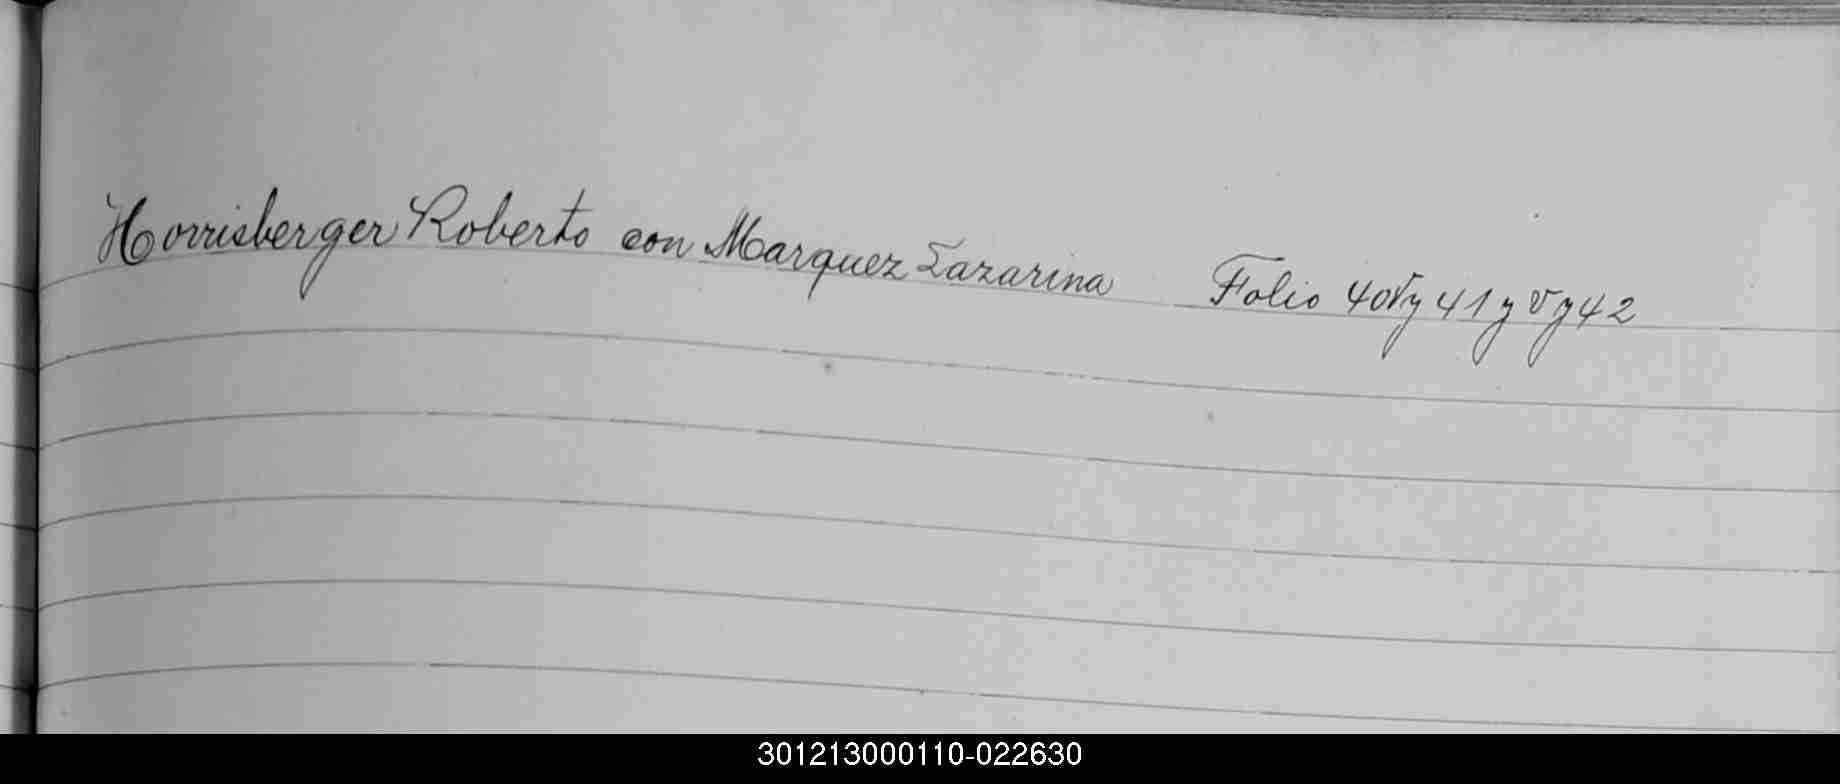 Horrisberger Roberto con Marquez Lazarina Folio 40 v y 41 y v y 42
301213000110-022630